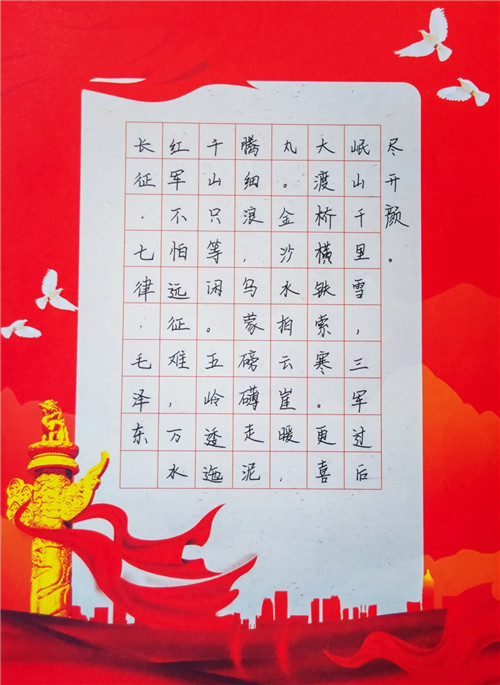 长征·七律·毛泽东
红军不怕远征难，万水
千山只等闲。五岭逶迤
腾细浪，乌蒙磅礴走泥
丸。金沙水拍云崖暖，
大渡桥横铁索寒。更喜
岷山千里雪，三军过后
尽开颜。